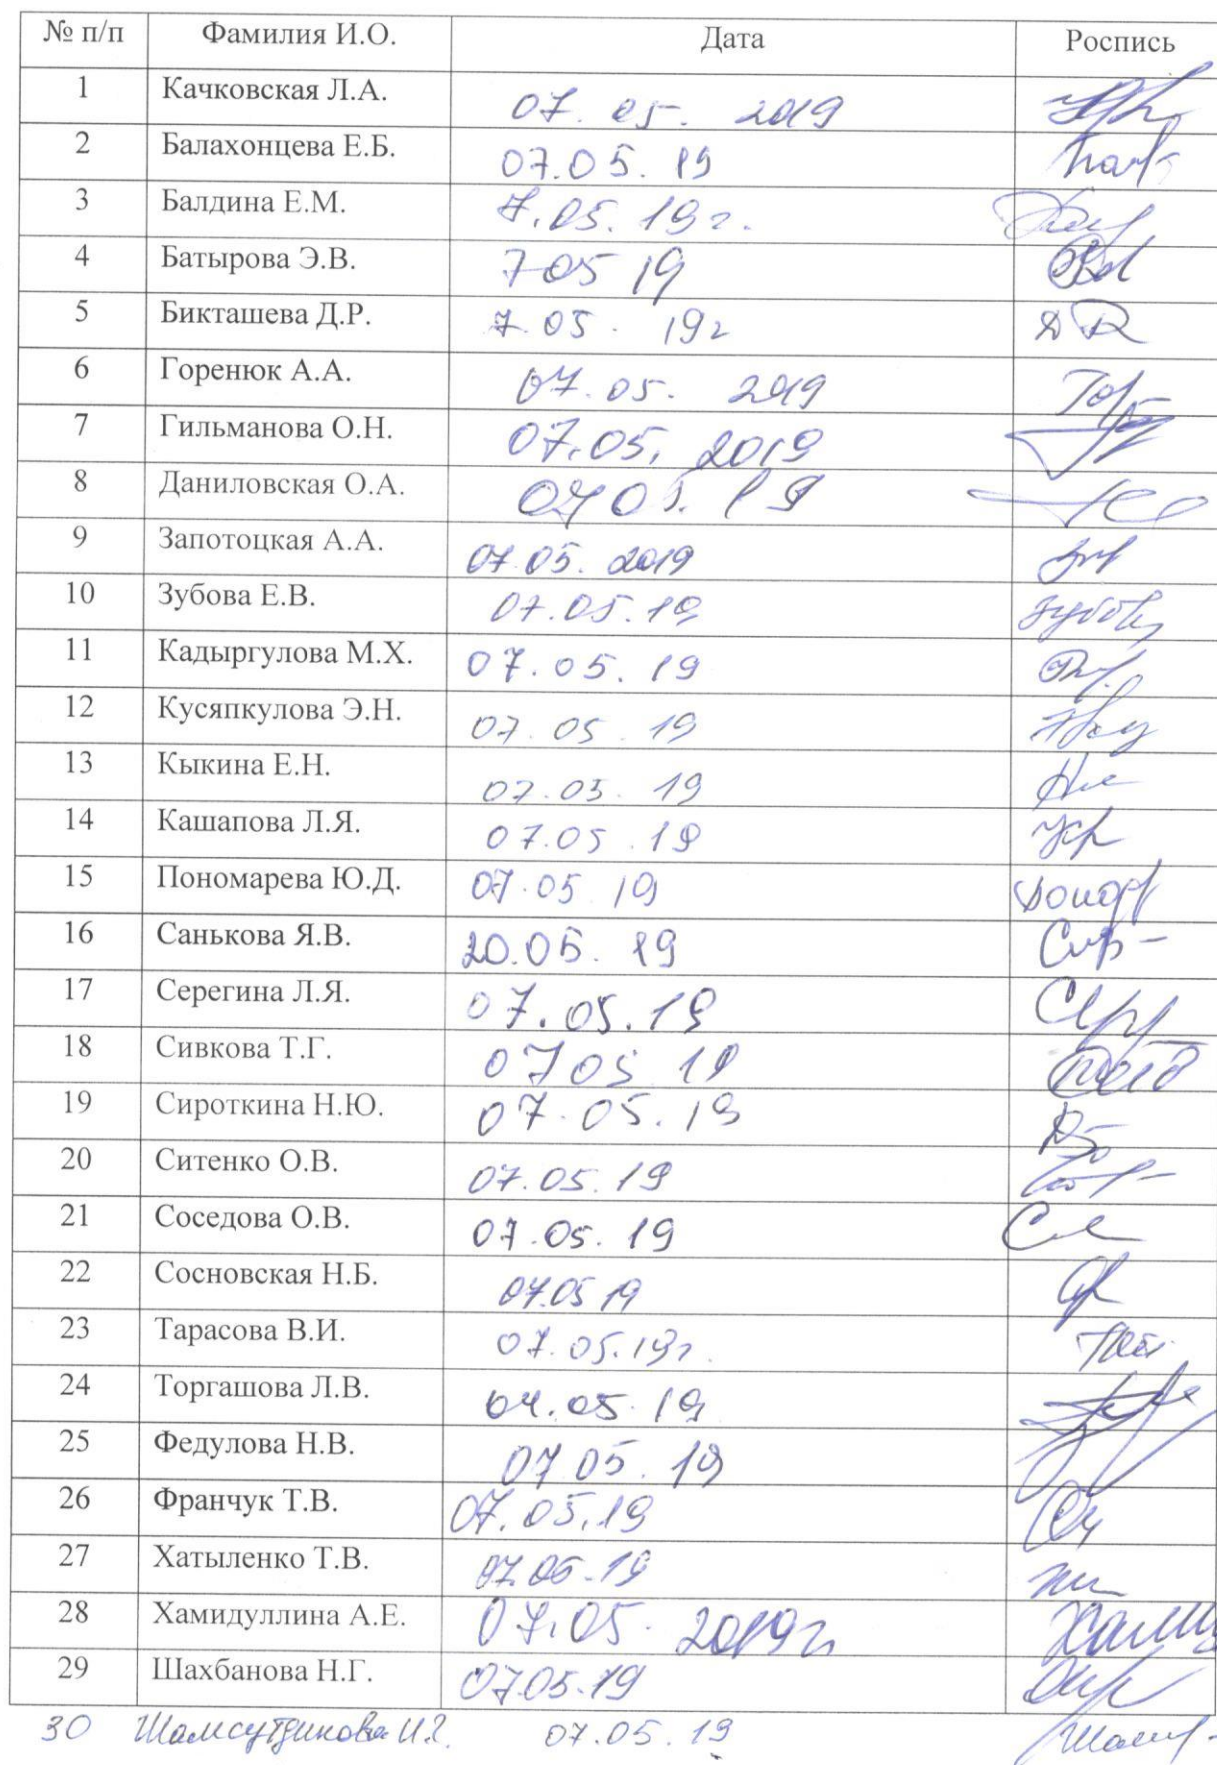 № п/п Фамилия И.О. Дата Роспись
1 Качковская Л.А. 07. 05. 2019
2 Балахонцева Е.Б. 07.05. 19
3 Балдина Е.М. 7.05. 19г.
4 Батырова Э.В. 7 05 19
5 Бикташева Д.Р. 7.05. 19г
6 Горенюк А.А. 07.05. 2019
7 Гильманова О.Н. 07.05. 2019
8 Даниловская О.А. 07 05. 19
9 Запотоцкая А.А. 07.05. 2019
10 Зубова Е.В. 07.05.19
11 Кадыргулова М.Х. 07.05. 19
12 Кусяпкулова Э.Н. 07. 05. 19
13 Кыкина Е.Н. 07.05. 19
14 Кашапова Л.Я. 07.05. 19
15 Пономарева Ю.Д. 07.05 19
16 Санькова Я.В. 20.05. 19
17 Серегина Л.Я. 07.05.19
18 Сивкова Т.Г. 07 05 19
19 Сироткина Н.Ю. 07.05.19
20 Ситенко О.В. 07.05.19
21 Соседова О.В. 07.05. 19
22 Сосновская Н.Б. 07.05 19
23 Тарасова В.И. 07.05.19г.
24 Торгашова Л.В. 07.05. 19
25 Федулова Н.В. 07 05. 19
26 Франчук Т.В. 07.05.19
27 Хатыленко Т.В. 07.05.19
28 Хамидуллина А.Е. 07.05. 2019г
29 Шахбанова Н.Г. 07.05.19
30 Шамсутдинова И.Г. 07.05.19